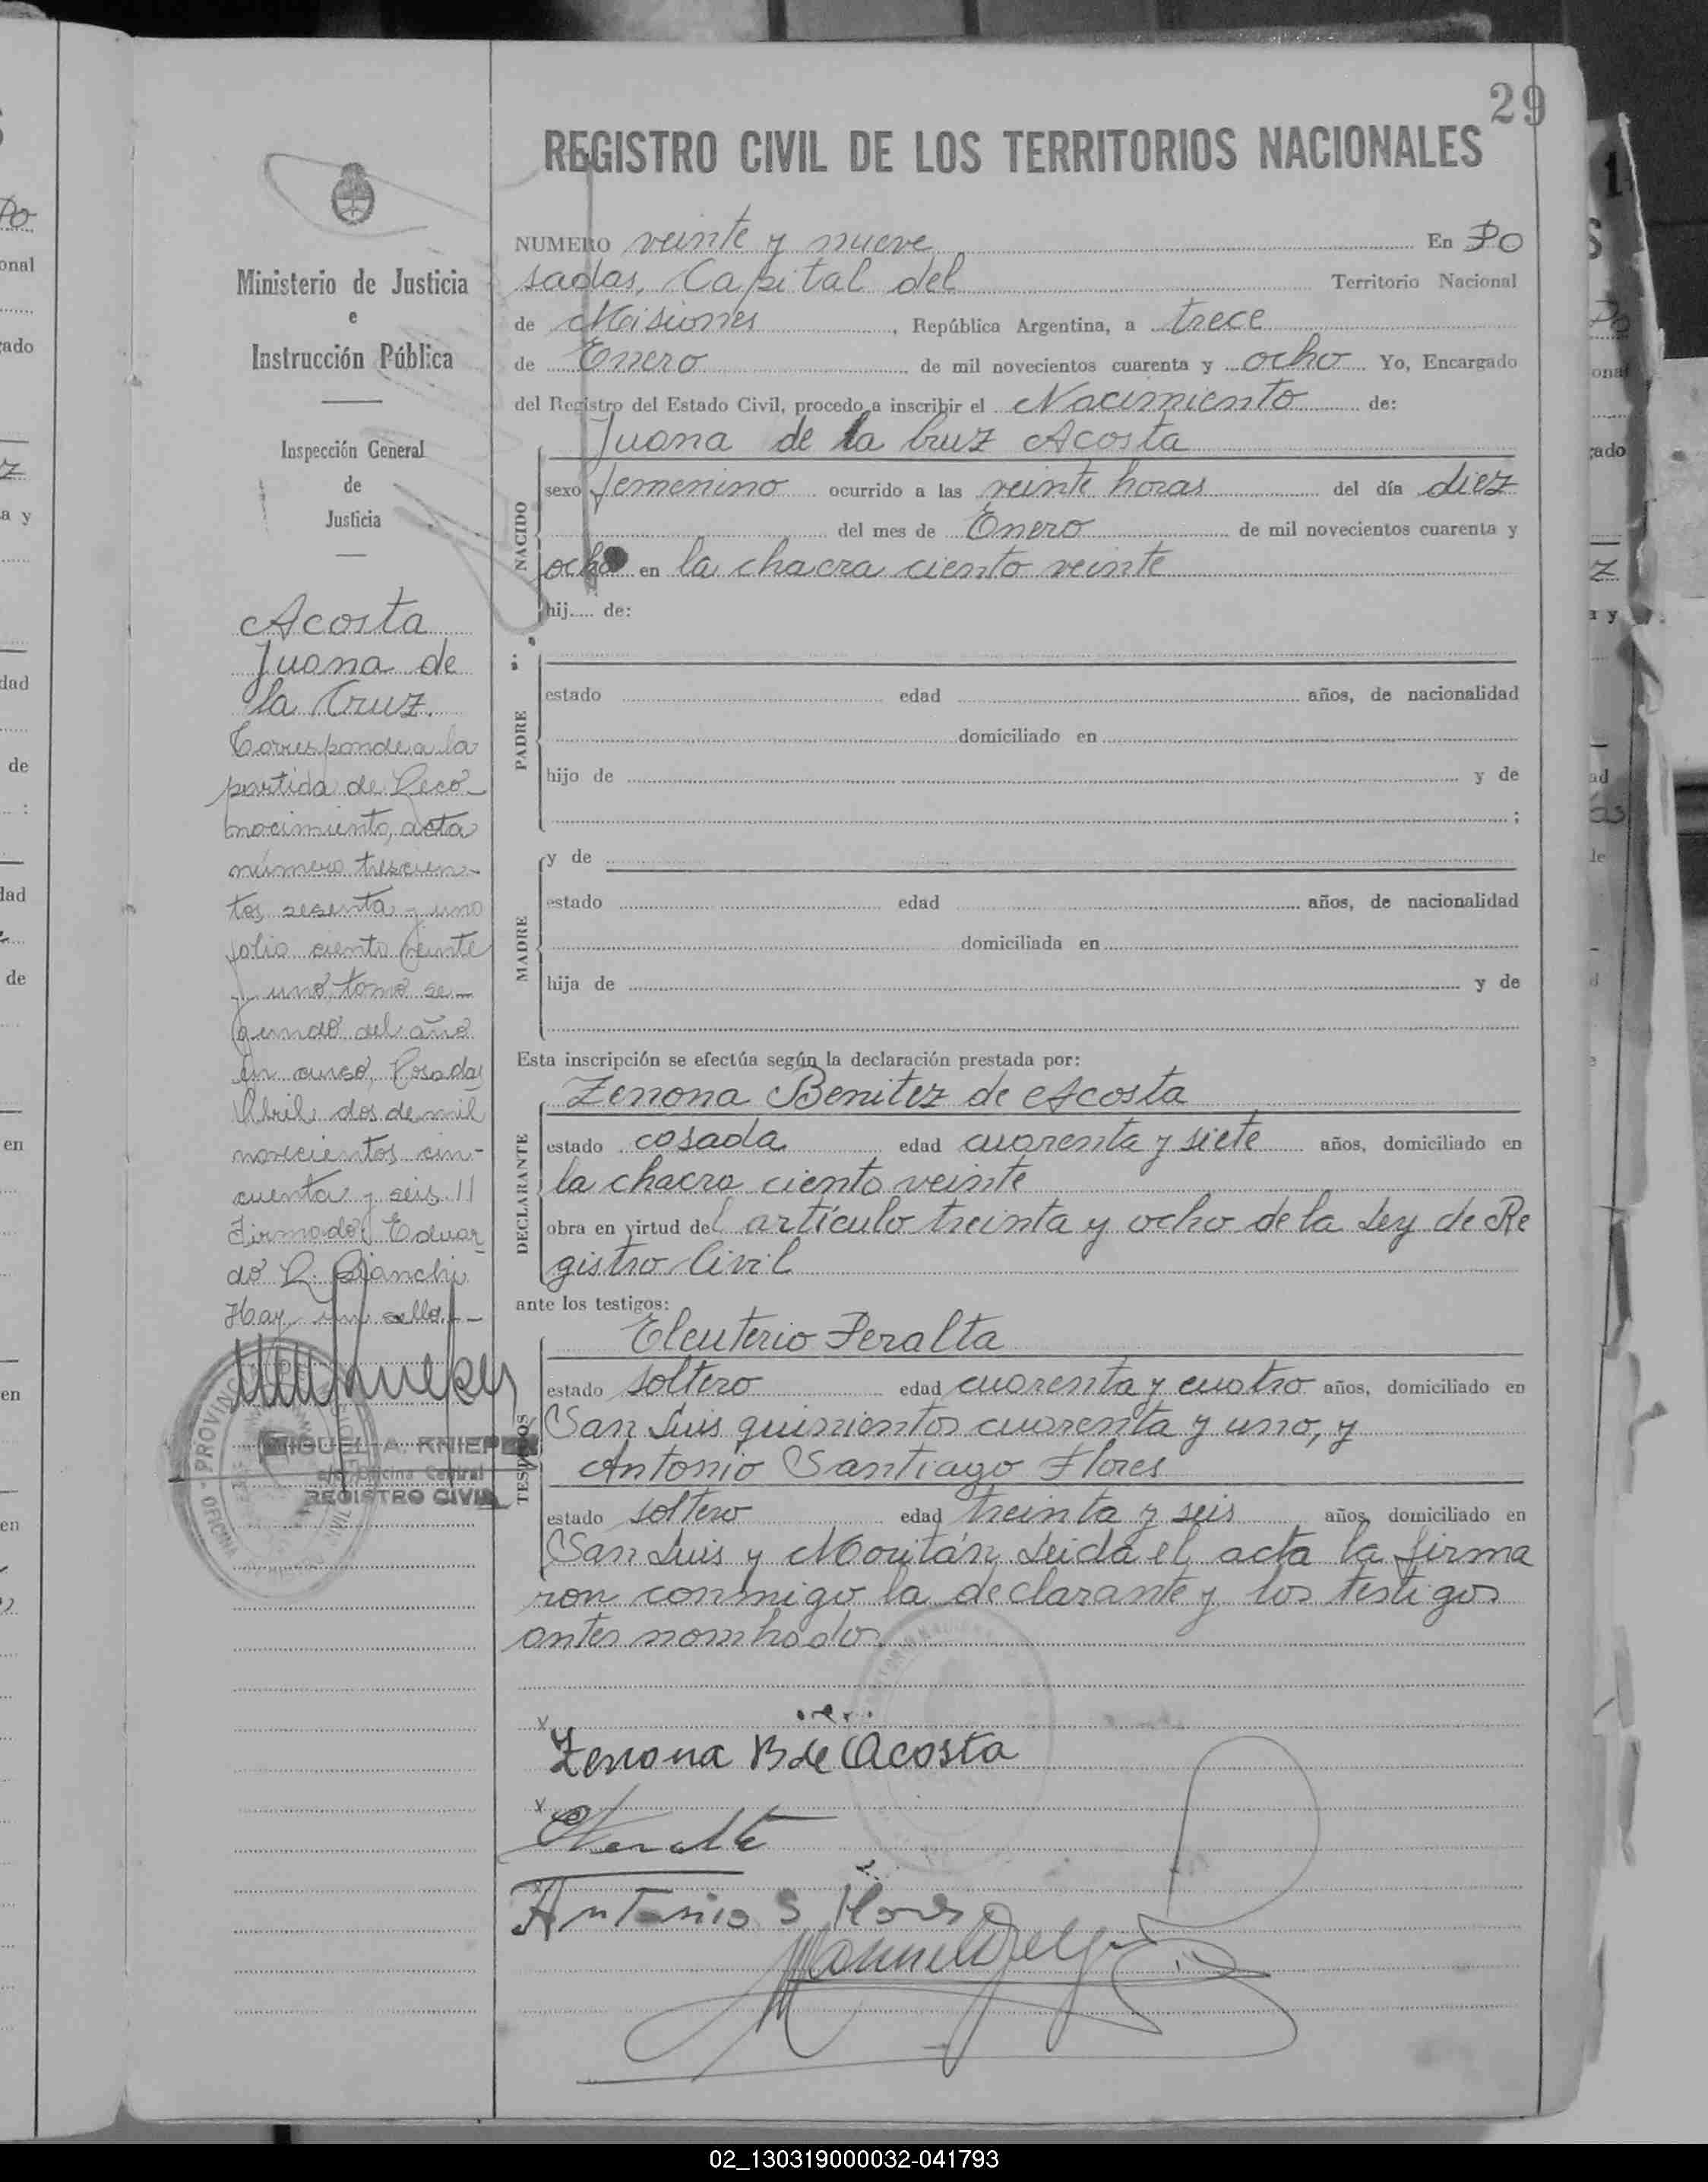 29
REGISTRO CIVIL DE LOS TERRITORIOS NACIONALES
NUMERO veinte y nueve En Po
sadas, Capital del Territorio Nacional
de Misiones, República Argentina, a trece
de Enero de mil novecientos cuarenta y ocho Yo, Encargado
del Registro del Estado Civil, procedo a inscribir el Nacimiento de:
Juana de la Cruz Acosta
NACIDO
sexo femenino ocurrido a las veinte horas del día diez
del mes de Enero de mil novecientos cuarenta y
ocho en la chacra ciento veinte
hij..... de:
PADRE
estado edad años, de nacionalidad
domiciliado en
hijo de y de
;
MADRE
y de
estado edad años, de nacionalidad
domiciliada en
hija de y de
Esta inscripción se efectúa según la declaración prestada por:
DECLARANTE
Zenona Benitez de Acosta
estado casada edad cuarenta y siete años, domiciliado en
la chacra ciento veinte
obra en virtud del artículo treinta y ocho de la Ley de Re
gistro Civil
ante los testigos:
TESTIGOS
Eleuterio Peralta
estado soltero edad cuarenta y cuatro años, domiciliado en
San Luis quinientos cuarenta y uno, y
Antonio Santiago Flores
estado soltero edad treinta y seis años, domiciliado en
San Luis y Leida el acta la firma
ron conmigo la declarante y los testigos
antes nombrados.
Zenona B de Acosta
Antonio S Flores
Ministerio de Justicia
e
Instrucción Pública
Inspección General
de
Justicia
Acosta
Juana de
la Cruz.
Corresponde a la
partida de Reco-
nocimiento, acta
número trescien-
tos sesenta y uno
folio ciento veinte
y uno tomo se-
gundo del año
en curso, Posadas
Abril dos de mil
novecientos cin-
cuenta y seis //
Firmado: Eduar
do R. Bianchi
Hay un sello.-
MIGUEL A. KNIEPER
Oficina Central
REGISTRO CIVIL
02_130319000032-041793